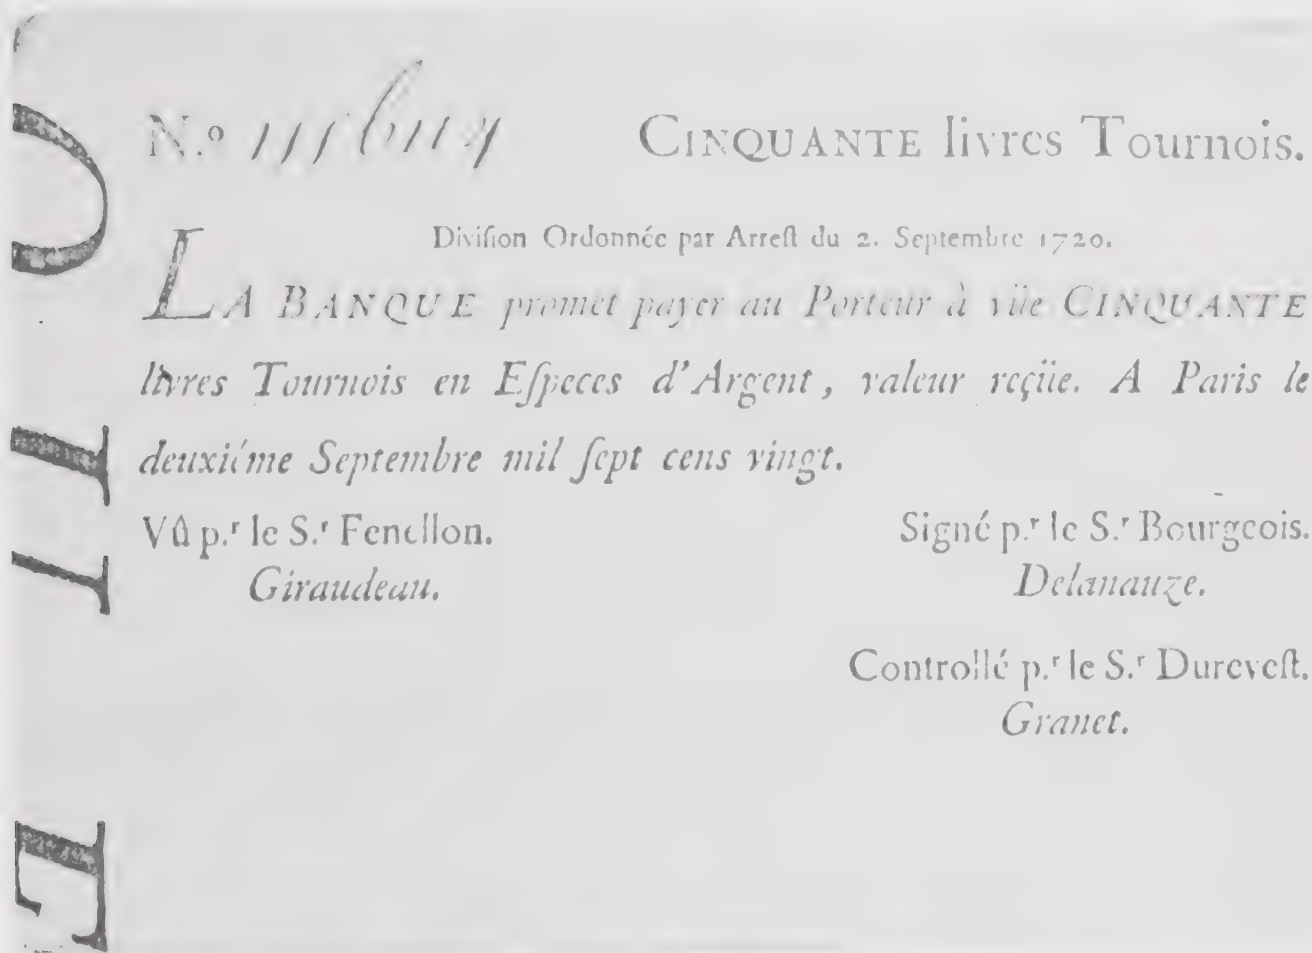 N.º CINQUANTE livres Tournois.
Diviſion Ordonnée par Arreſt du 2. Septembre 1720.
LA BANQUE promet payer au Porteur à vüe CINQUANTE
livres Tournois en Eſpeces d'Argent, valeur reçüe. A Paris le
deuxiéme Septembre mil ſept cens vingt.
Vû p.r le S.r Fenellon.
Giraudeau.
Signé p.r le S.r Bourgeois.
Delanauze.
Controllé p.r le S.r Dureveſt.
Granet.